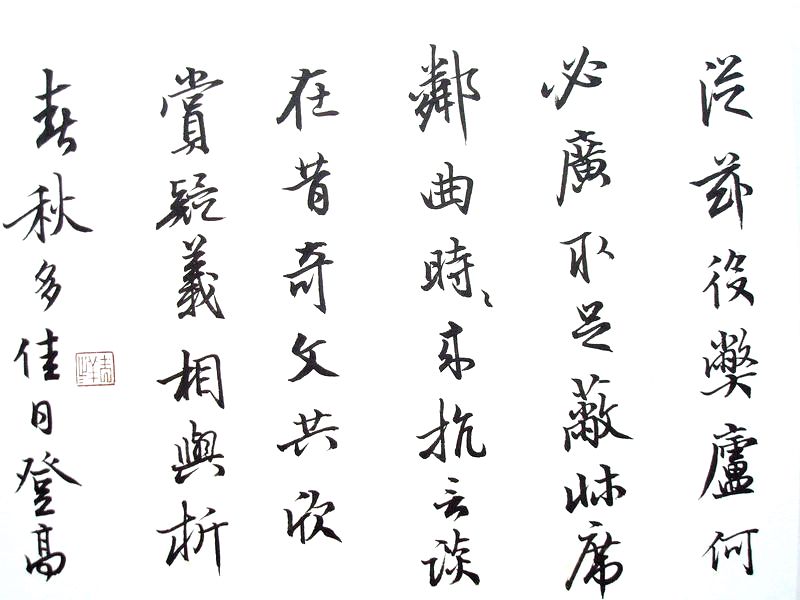 從茲役弊廬何
必廣取足蔽牀席
鄰曲時々來抗言談
在昔奇文共欣
賞疑義相與析
春秋多佳日登高